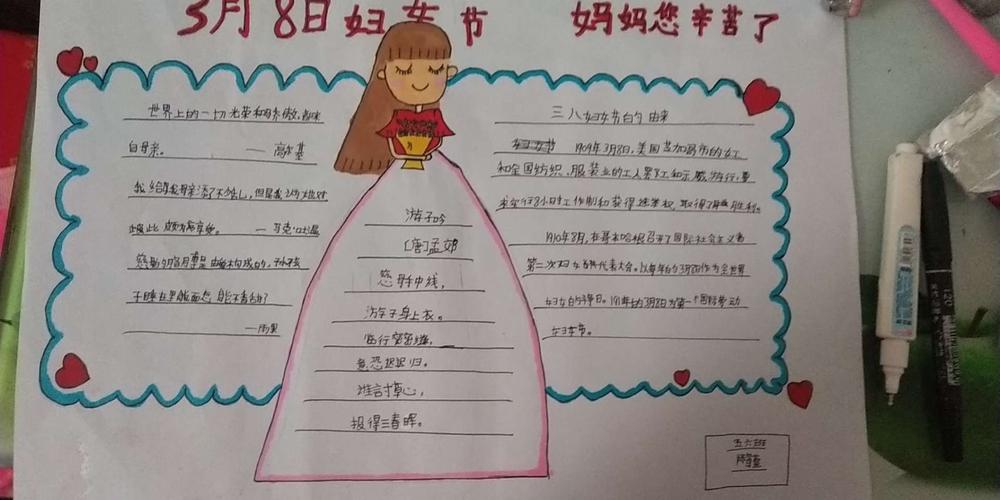 3月8日妇女节
妈妈您辛苦了
世界上的一切光荣和骄傲,都来
自母亲。 —— 高尔基
我给我母亲添了不少乱,但是我认为她对
此颇为享受。 —— 马克·吐温
慈母的胳膊是由爱构成的,孩子
睡在里面怎能不香甜?
——雨果
游子吟
[唐]孟郊
慈母手中线,
游子身上衣。
临行密密缝,
意恐迟迟归。
谁言寸草心,
报得三春晖。
三八妇女节的由来
妇女节 1909年3月8日,美国芝加哥市的女工
和全国纺织、服装业的工人罢工和示威游行,要
求实行8小时工作制和获得选举权,取得了胜利。
1910年8月,在哥本哈根召开了国际社会主义者
第二次妇女代表大会。以每年的3月8日作为全世界
妇女的节日。1911年的3月8日为第一个国际劳动
妇女节。
五六班